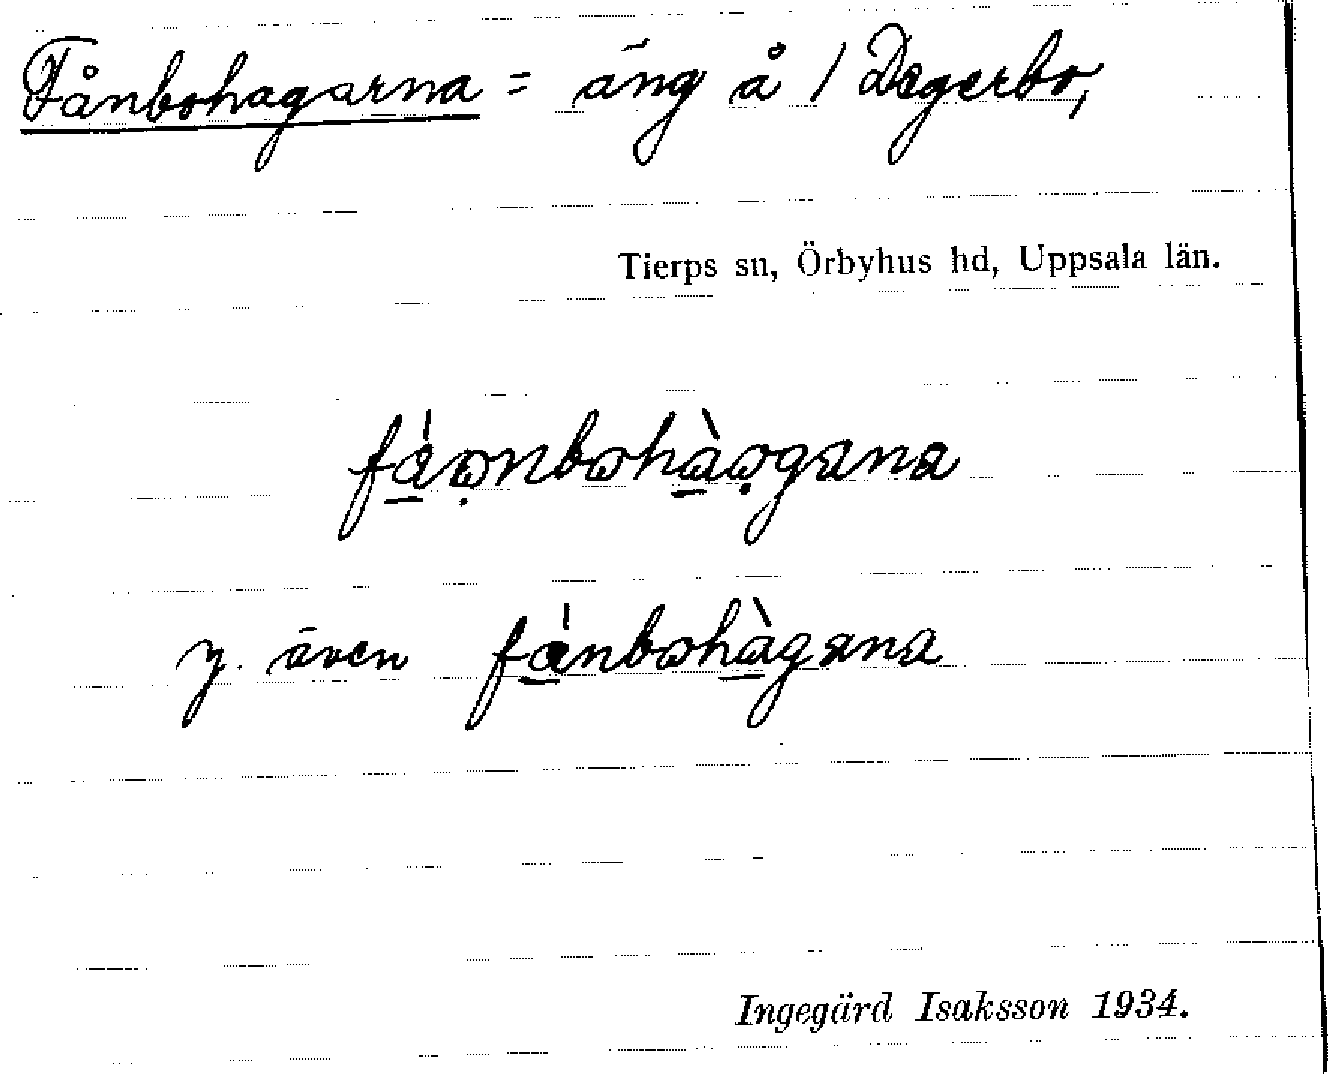 Fånbohagarna = äng å / Degerbo,
Tierps sn, Örbyhus hd, Uppsala län.
fàọnbohàọgana
y. även fànbohàgana
Ingegärd Isaksson 1934.